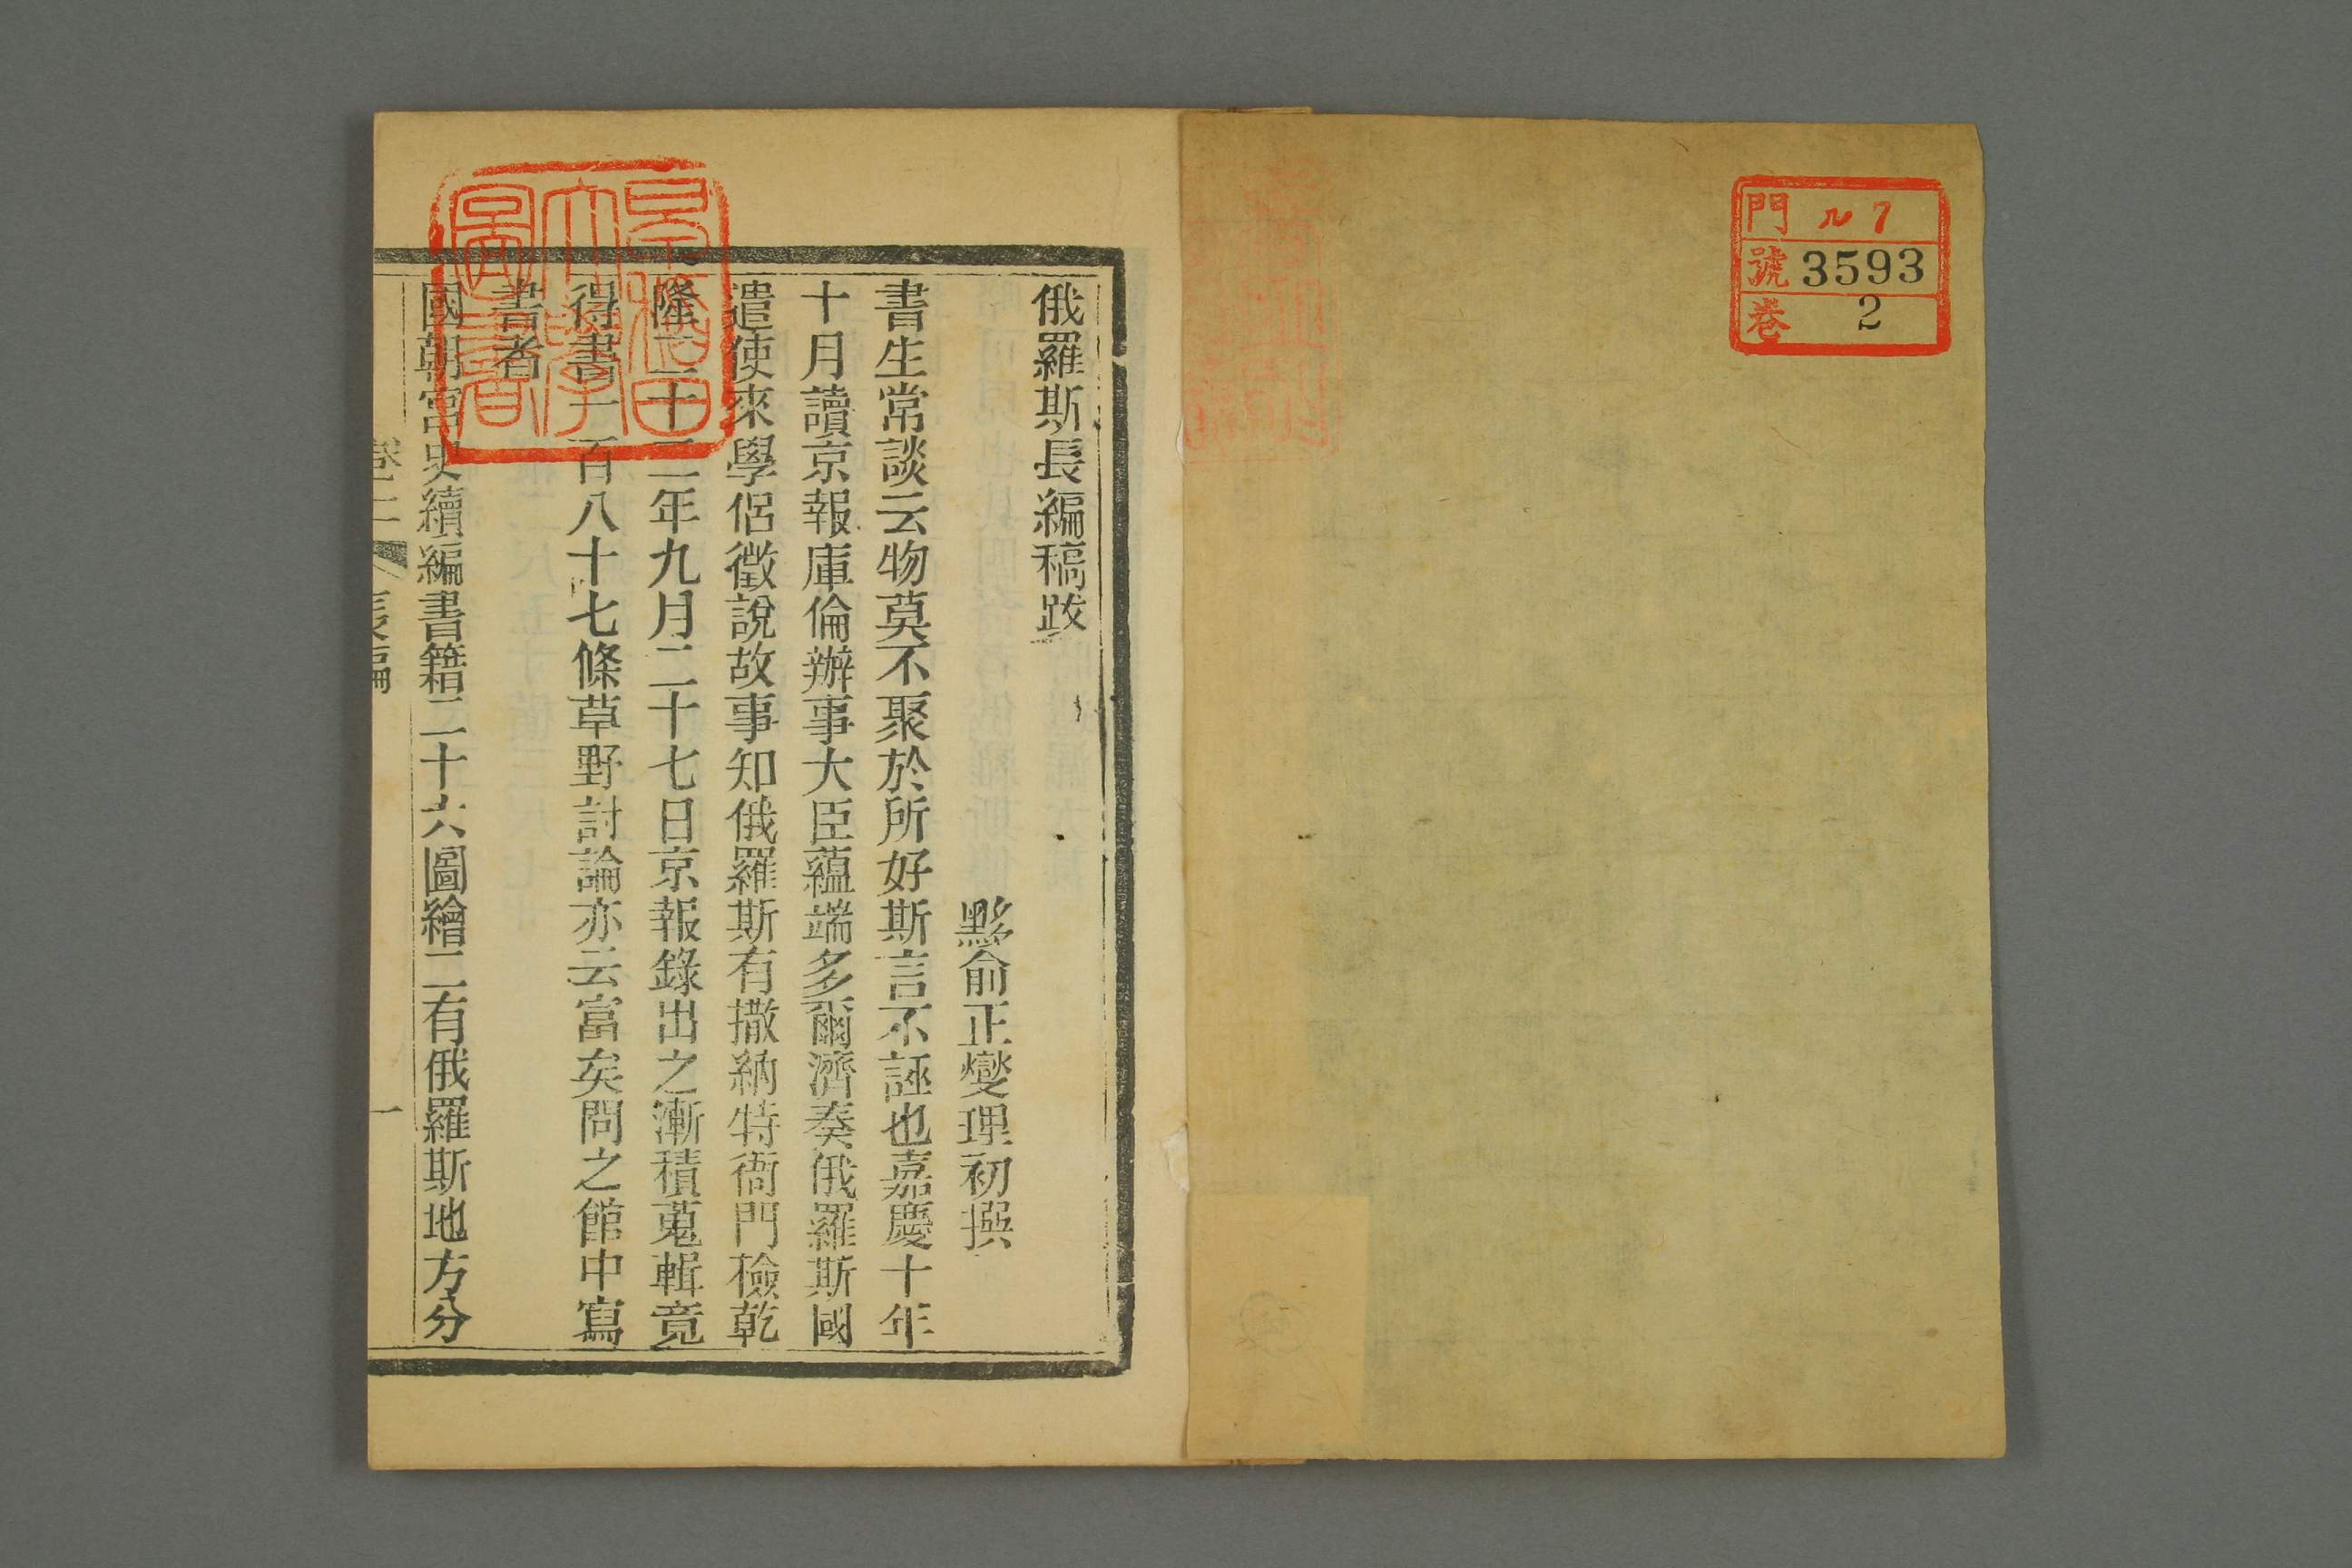 門 ル 7
號 3593
卷 2
俄羅斯長編稿跋
黟俞正燮理初撰
書生常談云物莫不聚於所好斯言不誣也嘉慶十年
十月讀京報庫倫辦事大臣蘊端多爾濟奏俄羅斯國
遣使來學侶徵說故事知俄羅斯有撒納特衙門檢乾
隆二十二年九月二十七日京報錄出之漸積蒐輯竟
得書一百八十七條草野討論亦云富矣問之館中寫
書者
國朝宮史續編書籍二十六圖繪二有俄羅斯地方分
卷二 長編 一
早稻田大學圖書